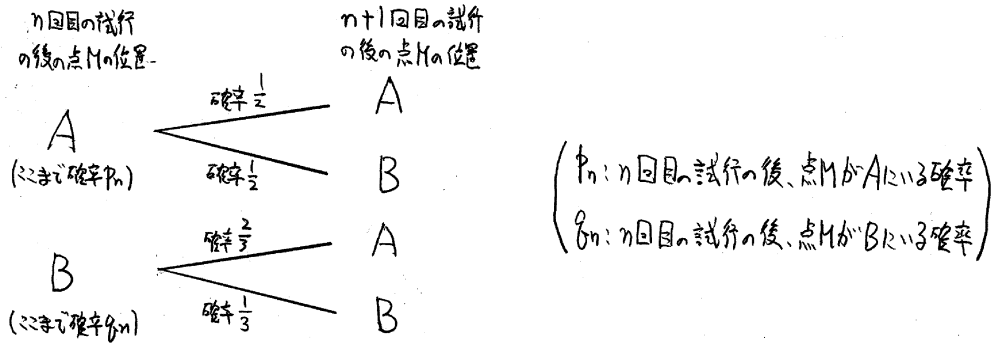 n回目の試行
の後の点Mの位置
n+1回目の試行
の後の点Mの位置
A
(ここまで確率pn)
確率 1/2
A
確率 1/2
B
B
(ここまで確率qn)
確率 2/3
A
確率 1/3
B
pn: n回目の試行の後、点MがAにいる確率
qn: n回目の試行の後、点MがBにいる確率